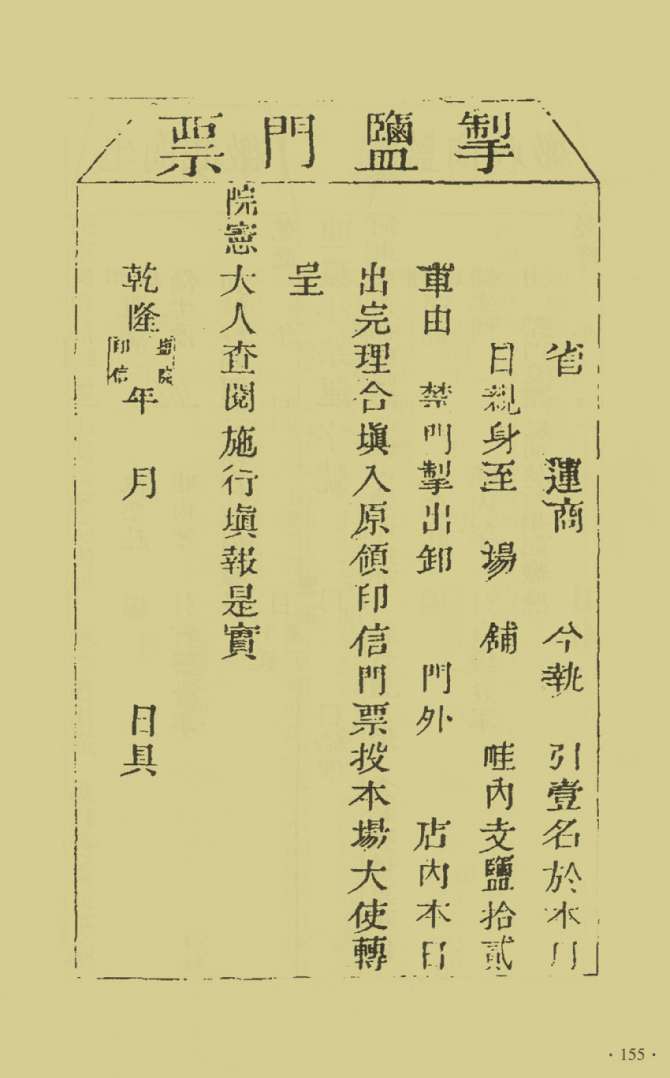 掣鹽門票
省　運商　今執　引壹名於本月
日親身至　場　舖　畦內支鹽拾貳
車由　禁門掣出卸　門外　店內本日
出完理合塡入原領印信門票投本場大使轉
呈
院憲大人查閱施行塡報是實
乾隆
鹽院
印信
年　月　日具
·155·